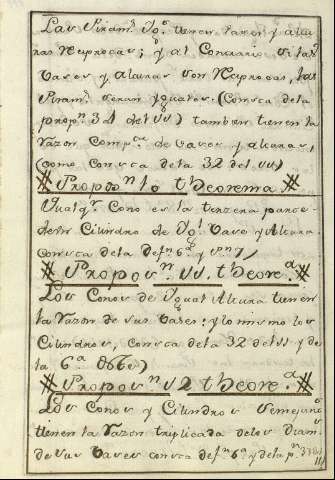 Las Piram.s Yg.s tienen bases y altu
ras Reciprocas; y al Contrario si las
bases y alturas son Reciprocas, las
Piram.s seran Yguales. (Consta dela
prop.n 34 del 11) tambien tienen la
razon Comp.ta de bases y alturas,
(como Consta dela 32 del 11.)
Propos.n 10 theorema
Qualq.r Cono es la tercera parte
de un Cilindro de Yg.l base y Altura
Consta dela Def.n 6.a y 7)
Propos.n 11. theore.a
Los Conos de Ygual Altura tienen
la razon de sus bases: y lo mismo los
Cilindros, Consta dela 32 del 11 y de
la 6.a
Propos.n 12 theore.a
Los Conos y Cilindros Semejan.s
tienen la razon triplicada delos Diam.s
de sus bases consta def.n 6.a y dela p.n